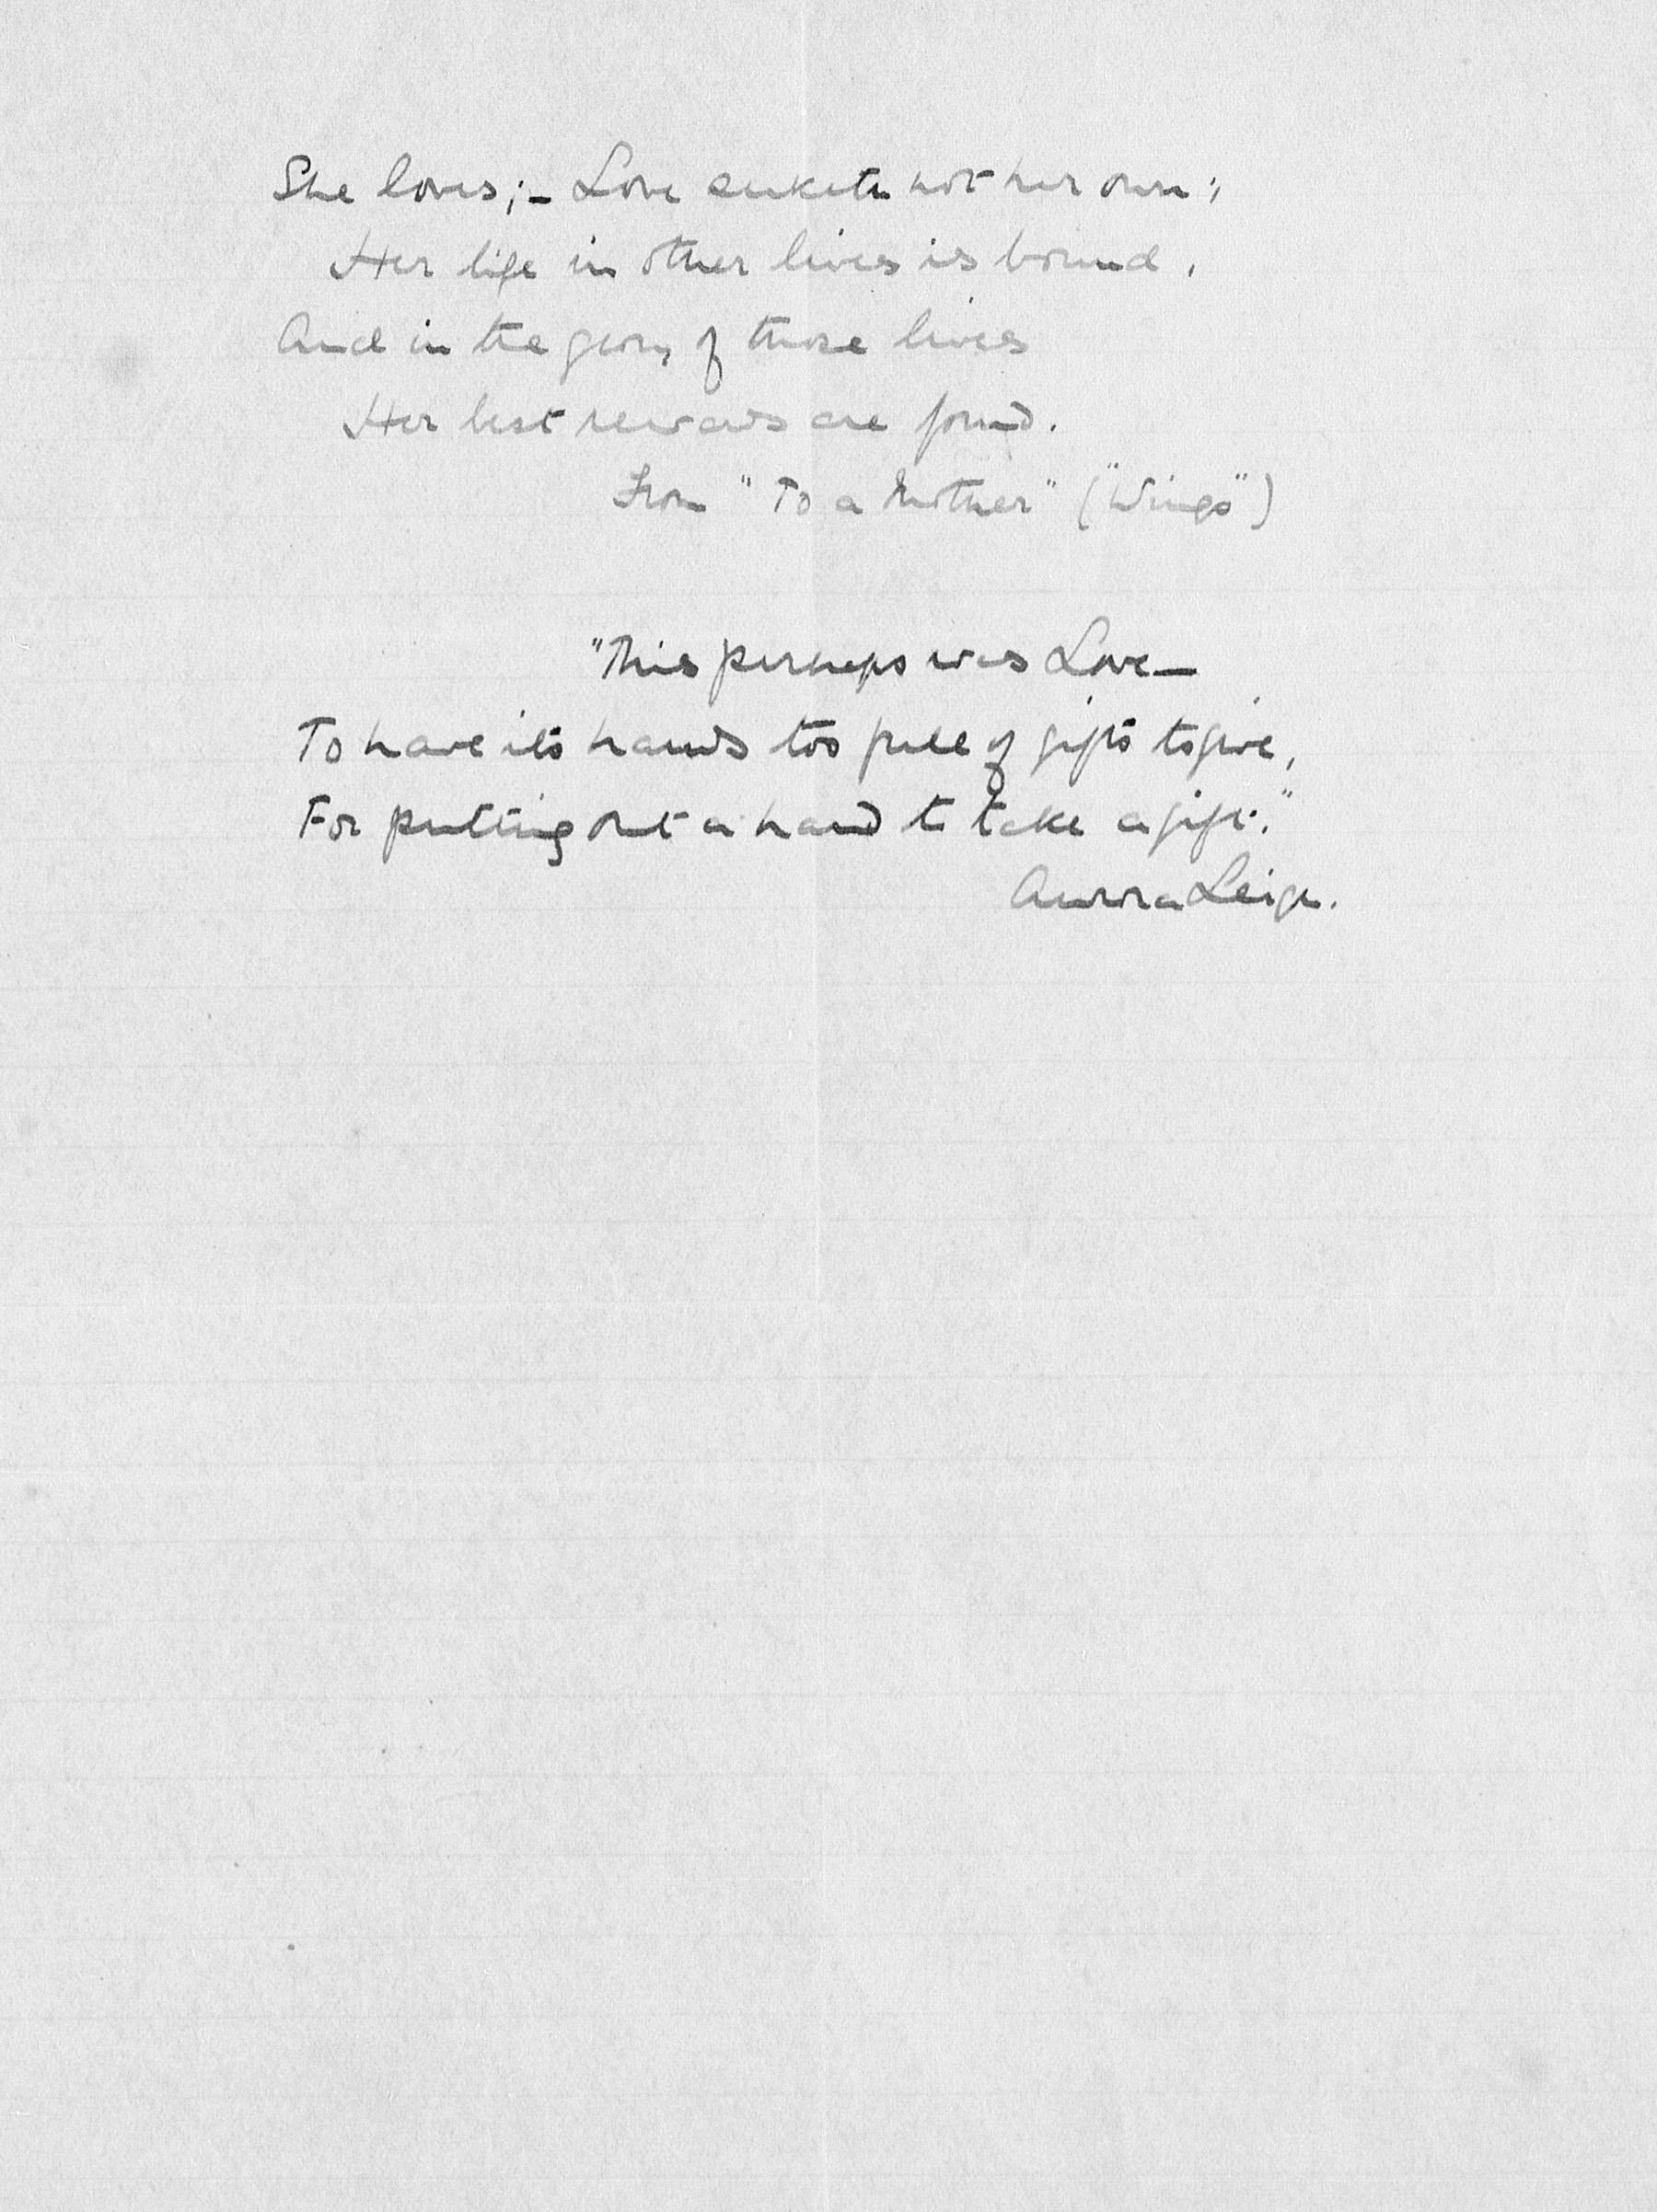 She loves; – Love seeketh not her own;
Her life in other lives is bound,
And in the glory of those lives
Her best rewards are found.
From "To a Mother" ("Wings")
"This perhaps was Love —
To have its hands too full of gifts to give,
For putting out a hand to take a gift."
Aurora Leigh.